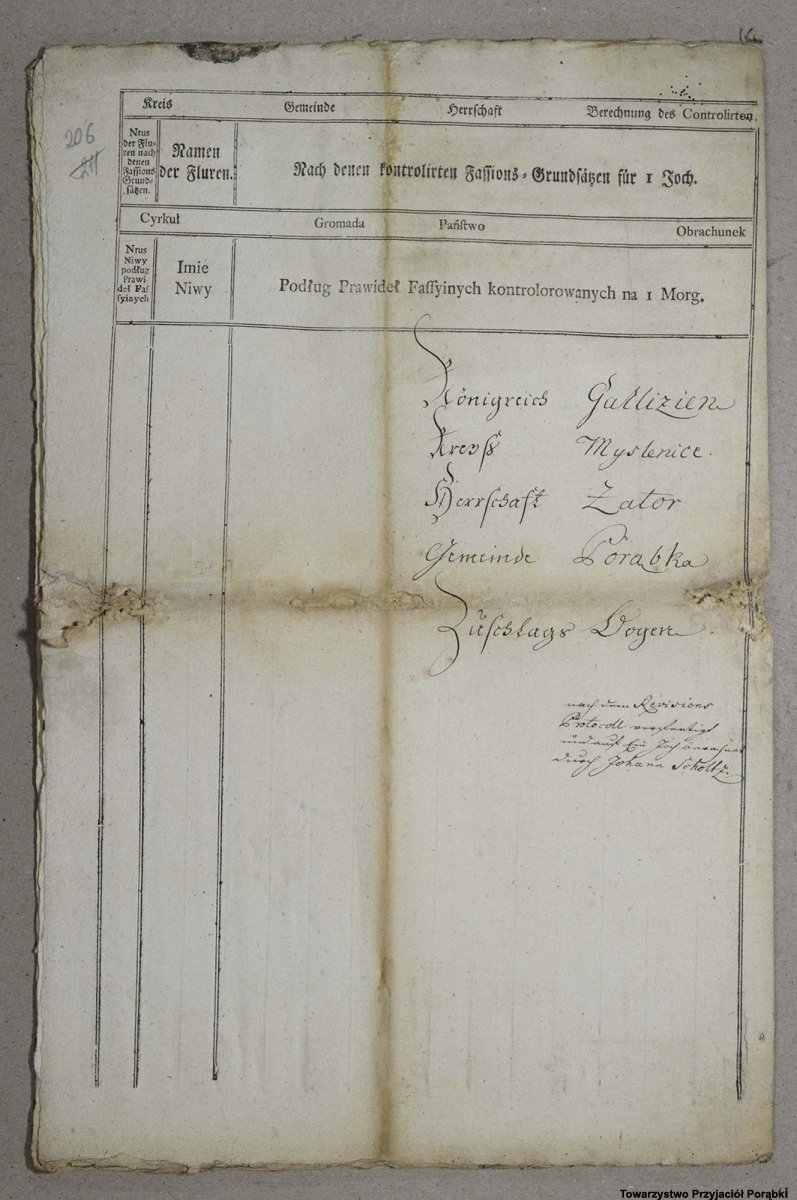 206
Kreis Gemeinde Herrschaft Berechnung des Controlirten.
Nrus
der Flu-
ren nach
denen
Faſſions
Grund-
ſätzen.
Namen
der Fluren.
Nach denen kontrolirten Faſſions-Grundſätzen für 1 Joch.
Cyrkuł Gromada Pańſtwo Obrachunek
Nrus
Niwy
podług
Prawi-
deł Faſ
ſyinych
Imie
Niwy
Podług Prawideł Faſſyinych kontrolorowanych na 1 Morg.
Königreich Gallizien
Kreyß Myslenice.
Herrſchaft Zator
Gemeinde Porąbka
Zuſchlags Bogen
nach dem Revisions
Protocoll verfertigt
und auf Ein Joch berechnet
durch Johann Scholtz.
Towarzystwo Przyjaciół Porąbki